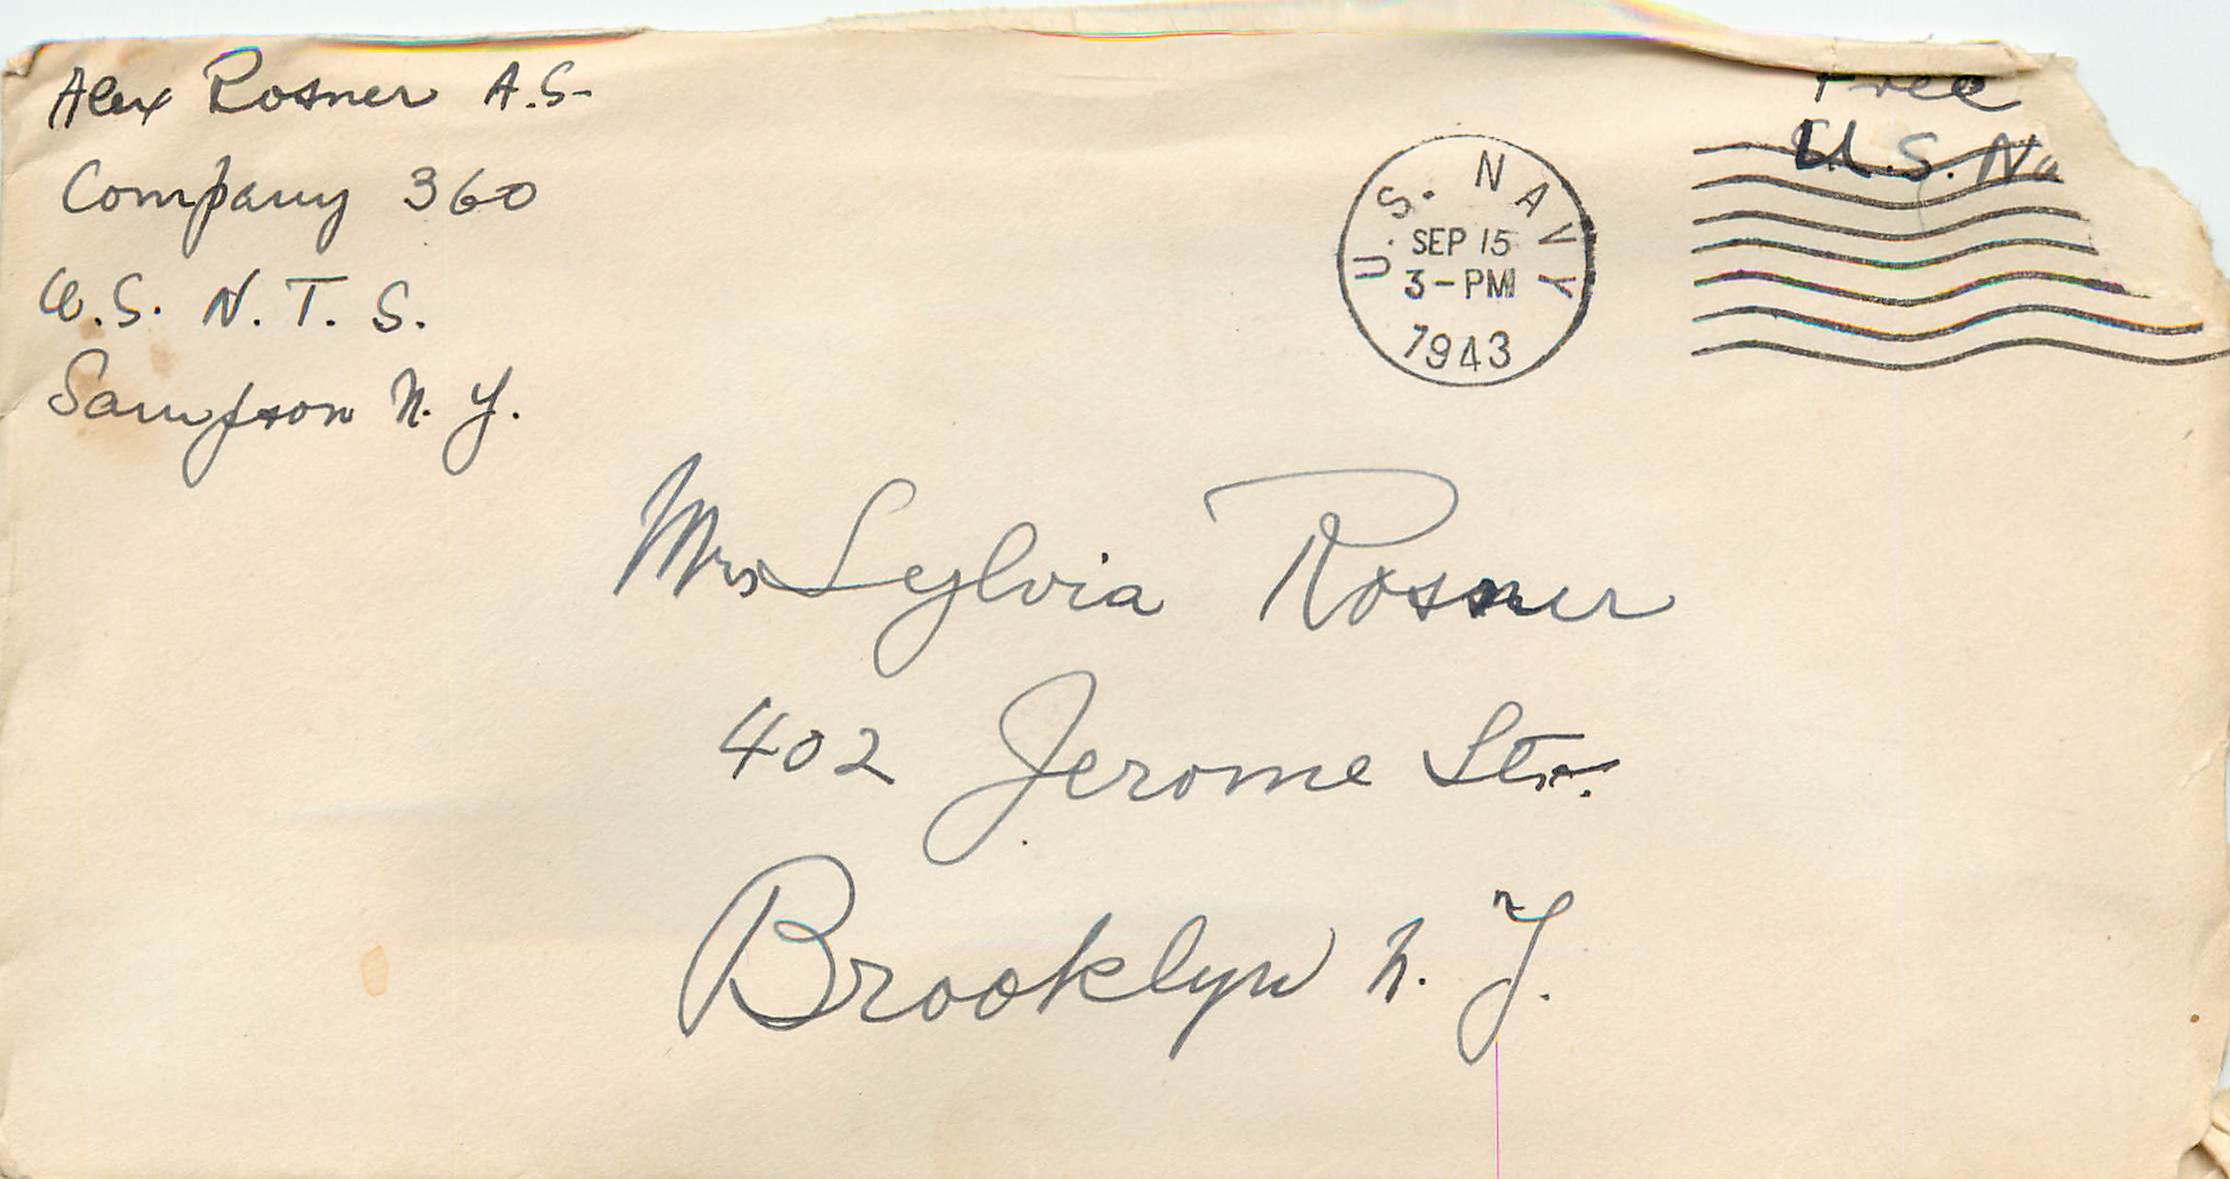 Alex Rosner A.S.
Company 360
U.S. N.T.S.
Sampson N.Y.
Free
U.S. Na
U.S. NAVY
SEP 15
3-PM
1943
Mrs Sylvia Rosner
402 Jerome Str.
Brooklyn N.Y.